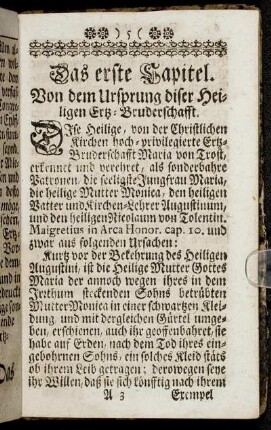 ) 5 (
Das erste Capitel.
Von dem Ursprung diser Hei-
ligen Ertz-Bruderschafft.
Dise Heilige, von der Christlichen
Kirchen hoch-privilegierte Ertz-
Bruderschafft Maria von Trost,
erkennet und verehret, als sonderbahre
Patronen, die seeligste Jungfrau Maria,
die heilige Mutter Monica, den heiligen
Vatter und Kirchen-Lehrer Augustinum,
und den heiligen Nicolaum von Tolentin.
Maigretius in Arca Honor. cap. 10. und
zwar aus folgenden Ursachen:
Kurtz vor der Bekehrung des Heiligen
Augustini, ist die Heilige Mutter Gottes
Maria der annoch wegen ihres in dem
Irrthum steckenden Sohns betrübten
Mutter Monica in einer schwartzen Klei-
dung, und mit dergleichen Gürtel umge-
ben, erschienen, auch ihr geoffenbahret, sie
habe auf Erden, nach dem Tod ihres ein-
gebohrnen Sohns, ein solches Kleid stäts
ob ihrem Leib getragen; derowegen seye
ihr Willen, daß sie sich könfftig nach ihrem
A 3 Exempel